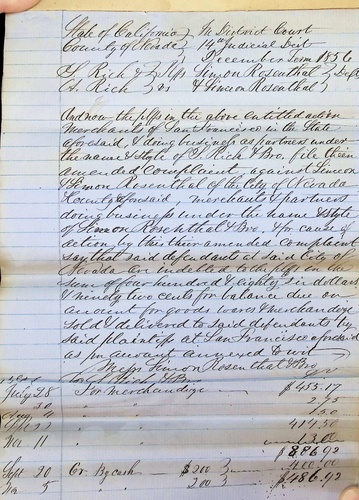 State of California } In District Court
County of Nevada } 14th Judicial Dist
December Term 1856
G Rich & } Plfs Lemon Rosenthal } Defts
S. Rich } vs & Simeon Rosenthal }
And now the plffs in the above entitled action
merchants of San Francisco in the State
aforesaid, & doing business as partners under
the name & style of G Rich & Bro, file their
amended complaint against Simeon
& Lemon Rosenthal of the City of Nevada
County aforesaid, merchants & partners
doing business under the name & style
of Lemon Rosenthal & Bro, & for cause of
action by this their amended complaint
say that said defendants at said City of
Nevada are indebted to the plffs in the
sum of four hundred & eighty six dollars
& ninety two cents for balance due on
account for goods wares & merchandize
sold & delivered to said defendants by
said plaintiffs at San Francisco aforesaid
as pr account annexed to wit
Lemon Rosenthal & Bro
Rich & Bro
July 28 For merchandize $455.17
" 30 " 2.75
"
" 414.50
Nov. 11 "
$886.92
Sept 20 Cr. By cash $200 }
5 " 200 } 400.00
$486.92